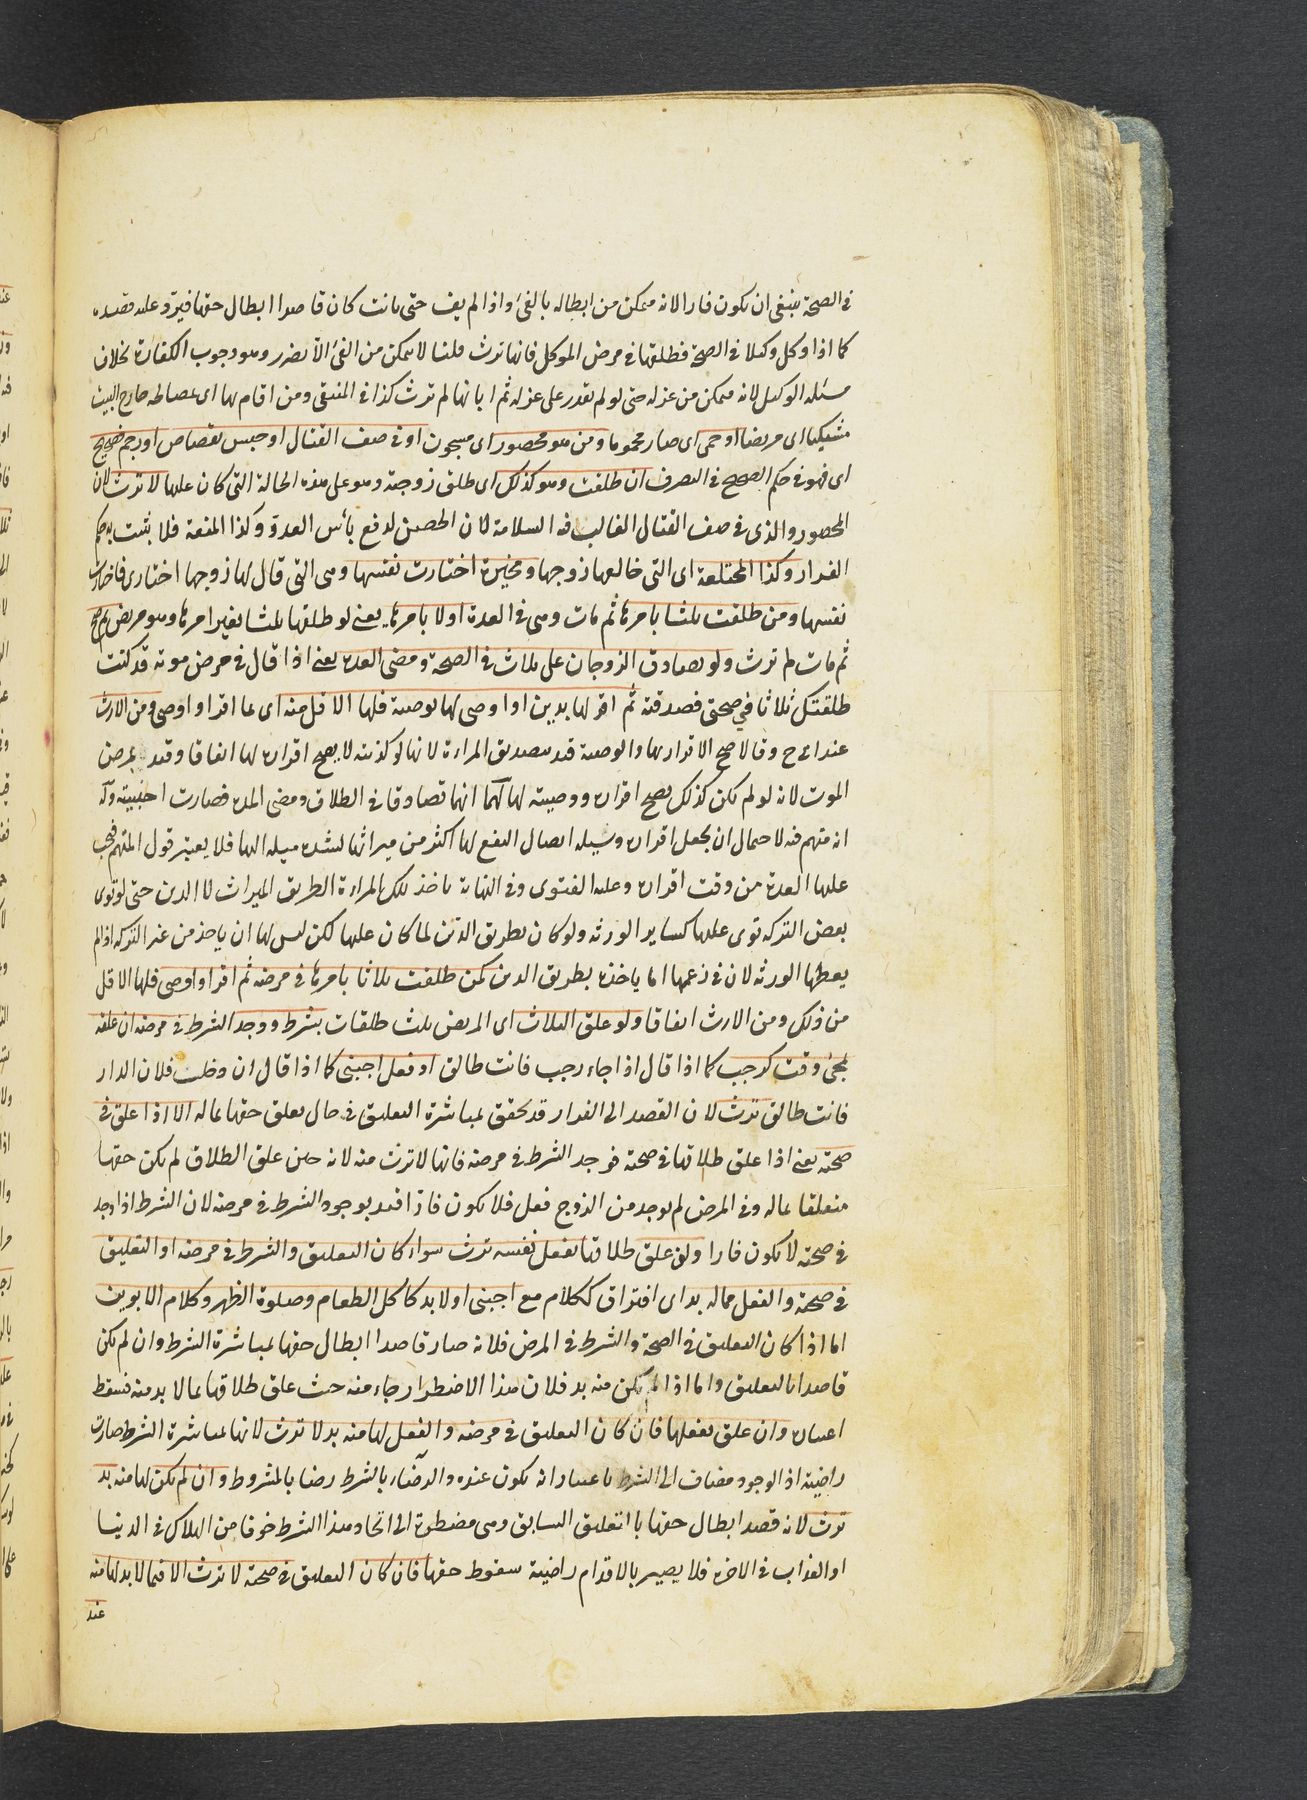 في الصحة ينبغي ان يكون فارا لانه متمكن من ابطاله بالفئ واذا لم يف حتى بانت كان قاصدا ابطال حقها فيرد عليه قصده
كما اذا وكل وكيلا في الصحة فطلقها في مرض الموكل فانها ترث قلنا لا يتمكن من الفئ الا بضرر وهو وجوب الكفارة بخلاف
مسئلة الوكيل لانه متمكن من عزله حتى لو لم يقدر على عزله ثم ابانها لم ترث كذا في المنتقى ومن اقام بها اى بمصالحه خارج البيت
مشتكيا اى مريضا او حمى اى صار محموما ومن هو محصور اى مسجون او في صف القتال او حبس بقصاص او رجم صحيح
اى فهو في حكم الصحيح في التصرف ان طلقت وهو كذلك اى طلق زوجته وهو على هذه الحالة التى كان عليها لا ترث لان
المحصور والذى في صف القتال الغالب فيه السلامة لان الحصن لدفع بأس العدو وكذا المنعة فلا يثبت به حكم
الفرار وكذا المختلعة اى التى خالعها زوجها ومخيرة اختارت نفسها وهى التى قال لها زوجها اختارى فاختارت
نفسها ومن طلقت ثلثا بامرها ثم مات وهى في العدة اولا بامرها يعنى لو طلقها ثلثا بغير امرها وهو مريض ثم صح
ثم مات لم ترث ولو تصادق الزوجان على ثلاث في الصحة ومضى العدة يعنى اذا قال في مرض موته قد كنت
طلقتك ثلاثا في صحتى فصدقته ثم اقر لها بدين او اوصى لها بوصية فلها الاقل منه اى مما اقر او اوصى ومن الارث
عند ابى ح وقالا صح الاقرار بها والوصية قيد بتصديق المراءة لانها لو كذبته لا يصح اقراره لها اتفاقا وقيد بمرض
الموت لانه لو لم يكن كذلك يصح اقراره ووصيته لها لهما انهما تصادقا في الطلاق ومضى العدة فصارت اجنبية وله
انه متهم فيه لاحتمال ان يجعل اقراره وسيلة ايصال النفع لها اكثر من ميراثها لشدة ميله اليها فلا يعتبر قول المتهم فيجب
عليها العدة من وقت اقراره وعليه الفتوى وفي النهاية ياخذ تلك المراءة الطريق الميراث لا الدين حتى لو توى
بعض التركة توى عليها كساير الورثة ولو كان بطريق الدين لما كان عليها لكن ليس لها ان ياخذ من عين التركة اذا لم
يعطها الورثة لان في زعمها انما ياخذه بطريق الدين كمن طلقت ثلاثا بامرها في مرضه ثم اقر او اوصى فلها الاقل
من ذلك ومن الارث اتفاقا ولو علق الثلاث اى المريض ثلث طلقات بشرط ووجد الشرط في مرضه ان علقه
بمجئ وقت كرجب كما اذا قال اذا جاء رجب فانت طالق او فعل اجنبى كما اذا قال ان دخلت فلان الدار
فانت طالق ترث لان القصد الى الفرار قد تحقق بمباشرة التعليق في حال تعلق حقها بماله الا اذا علق في
صحته يعنى اذا علق طلاقها في صحته فوجد الشرط في مرضه فانها لا ترث منه لانه حين علق الطلاق لم يكن حقها
متعلقا بماله وفي المرض لم يوجد من الزوج فعل فلا يكون فارا قيد بوجود الشرط في مرضه لان الشرط اذا وجد
في صحته لا يكون فارا ولو علق طلاقها بفعل نفسه ترث سواء كان التعليق والشرط في مرضه او التعليق
في صحته والفعل مما له بد اى افتراق ككلام مع اجنبى اولا بد كاكل الطعام وصلوة الظهر وكلام الابوين
اما اذا كان التعليق في الصحة والشرط في المرض فلانه صار قاصدا ابطال حقها بمباشرة الشرط وان لم يكن
قاصدا بالتعليق واما اذا لم يكن منه بد فلان هذا الاضطرار جاء منه حيث علق طلاقها بما لا بد منه فسقط
اعتباره وان علق بفعلها فان كان التعليق في مرضه والفعل لها منه بد لا ترث لانها بمباشرة الشرط صارت
راضية اذ الوجود مضاف الى الشرط باعتبار انه يكون عنده والرضاء بالشرط رضا بالمشروط وان لم يكن لها منه بد
ترث لانه قصد ابطال حقها باالتعليق السابق وهى مضطرة الى اتحاد هذا الشرط خوفا من الهلاك في الدنيا
او العذاب في الاخرة فلا يصير بالاقدام راضية سقوط حقها فان كان التعليق في صحته لا ترث الا فيما لا بد لها منه
عند